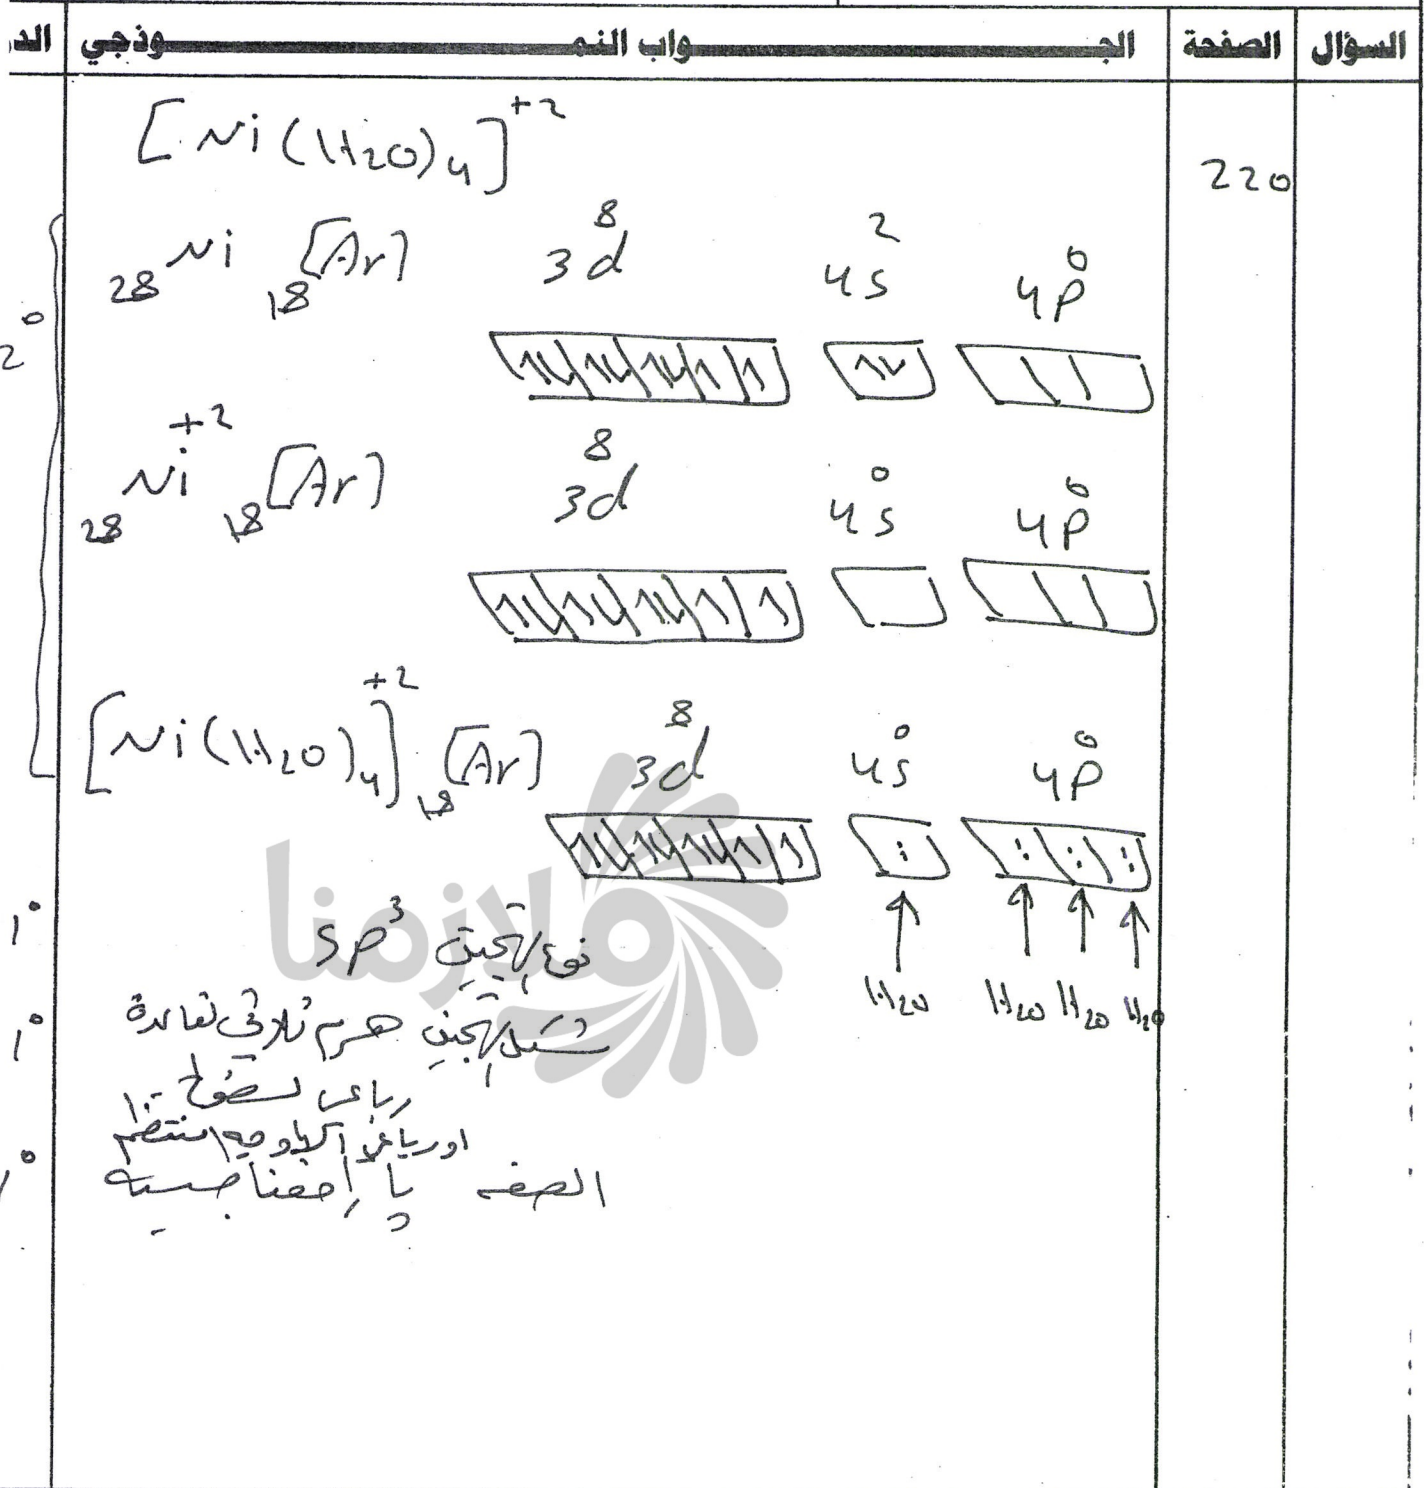 السؤال الصفحة الجـــواب النمـــوذجي الد
220
[Ni(H2O)4]+2
28Ni 18[Ar] 3d8 4s2 4p0
2°
28Ni+2 18[Ar] 3d8 4s0 4p0
[Ni(H2O)4]+2 18[Ar] 3d8 4s0 4p0
H2O H2O H2O H2O
نوع التهجين sp3 1°
شكل التهجين هرم ثلاثي القاعدة 1°
رباعي السطوح
او رباعي الاوجه المنتظم
الصفة بارامغناطيسية 1°
ملازمنا